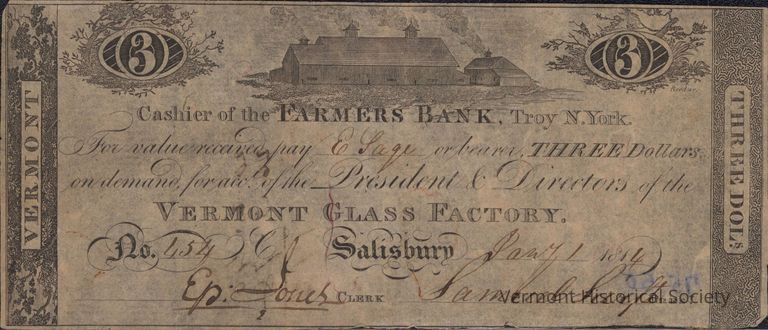 3 3
Reed sc.
VERMONT
Cashier of the FARMERS BANK, Troy N.York.
For value received, pay E Sage or bearer, THREE Dollars
on demand, for acct. of the President & Directors of the
VERMONT GLASS FACTORY.
No. 454 Salisbury Jany 1 1814
Ep: Jones CLERK
THREE DOLs.
Vermont Historical Society